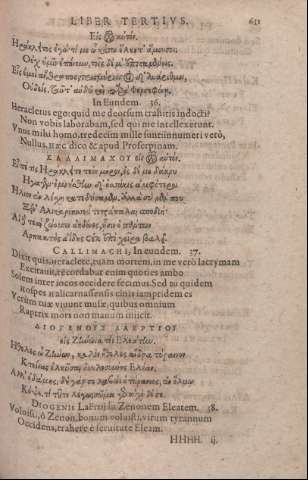 LIBER TERTIVS. 631
Εἰς αὐτόν.
Ἡράκλειτος ἐγώ· τί με ὦ κάτω ἕλκετ' ἄμουσοι;
Οὐχ ὑμῖν ἐπόνουν, τοῖς δέ μ' ἐπισταμένοις.
Εἷς ἐμοὶ ἄνθρωπος τρισμύριοι, οἱ δ' ἀνάριθμοι
Οὐδείς. ταῦτ' αὐδῶ καὶ Φερσεφόνῃ.
In Eundem. 36.
Heracletus ego: quid me deorsum trahitis Indocti?
Non vobis laborabam, sed qui me intellexerunt.
Vnus mihi homo, tredecim mille sunt: innumeri verò,
Nullus, hæc dico & apud Proserpinam.
ΚΑΛΛΙΜΑΧΟΥ εἰς αὐτόν.
Εἶπέ τις Ἡράκλειτε τεὸν μόρον, ἐς δέ με δάκρυ
Ἤγαγεν, ἐμνήσθην δ' ὁσσάκις ἀμφότεροι
Ἥλιον λέσχῃ κατεδύσαμεν, ἀλλὰ σὺ μέν που
Ξεῖν' Ἁλικαρνασσεῦ τετράπαλαι σποδιή·
Αἱ δὲ τεαὶ ζώουσιν ἀηδόνες, ᾗσιν ὁ πάντων
Ἁρπακτὴς ἀΐδης οὐκ ἐπὶ χεῖρα βαλεῖ.
CALLIMACHI, In eundem. 37.
Dixit quis, Heraclete, tuam mortem, in me verò lacrymam
Excitauit, recordabar enim quoties ambo
Solem inter iocos occidere fecimus. Sed tu quidem
Hospes Halicarnassensis cinis iampridem es
Verùm tuæ viuunt musæ, quibus omnium
Raptrix mors non manum iniicit.
ΔΙΟΓΕΝΟΥΣ ΛΑΕΡΤΙΟΥ
εἰς Ζήνωνα τὸν Ἐλεάτην.
Ἤθελες ὦ Ζήνων, καλὸν ἤθελες ἄνδρα τύραννον
Κτείνας ἐκλῦσαι δουλοσύνης Ἐλέαν.
Ἀλλ' ἐδάμης, δὴ γάρ σε λαβὼν ὁ τύραννος, ἐν ὅλμῳ
Κόψε, τί τοῦτο λέγω; σῶμα γὰρ, οὐχὶ δὲ σέ.
DIOGENIS Laërtij in Zenonem Eleatem. 38.
Voluisti, ò Zenon, bonum voluisti, virum tyrannum
Occidens, trahere è seruitute Eleam.
HHHH ij.